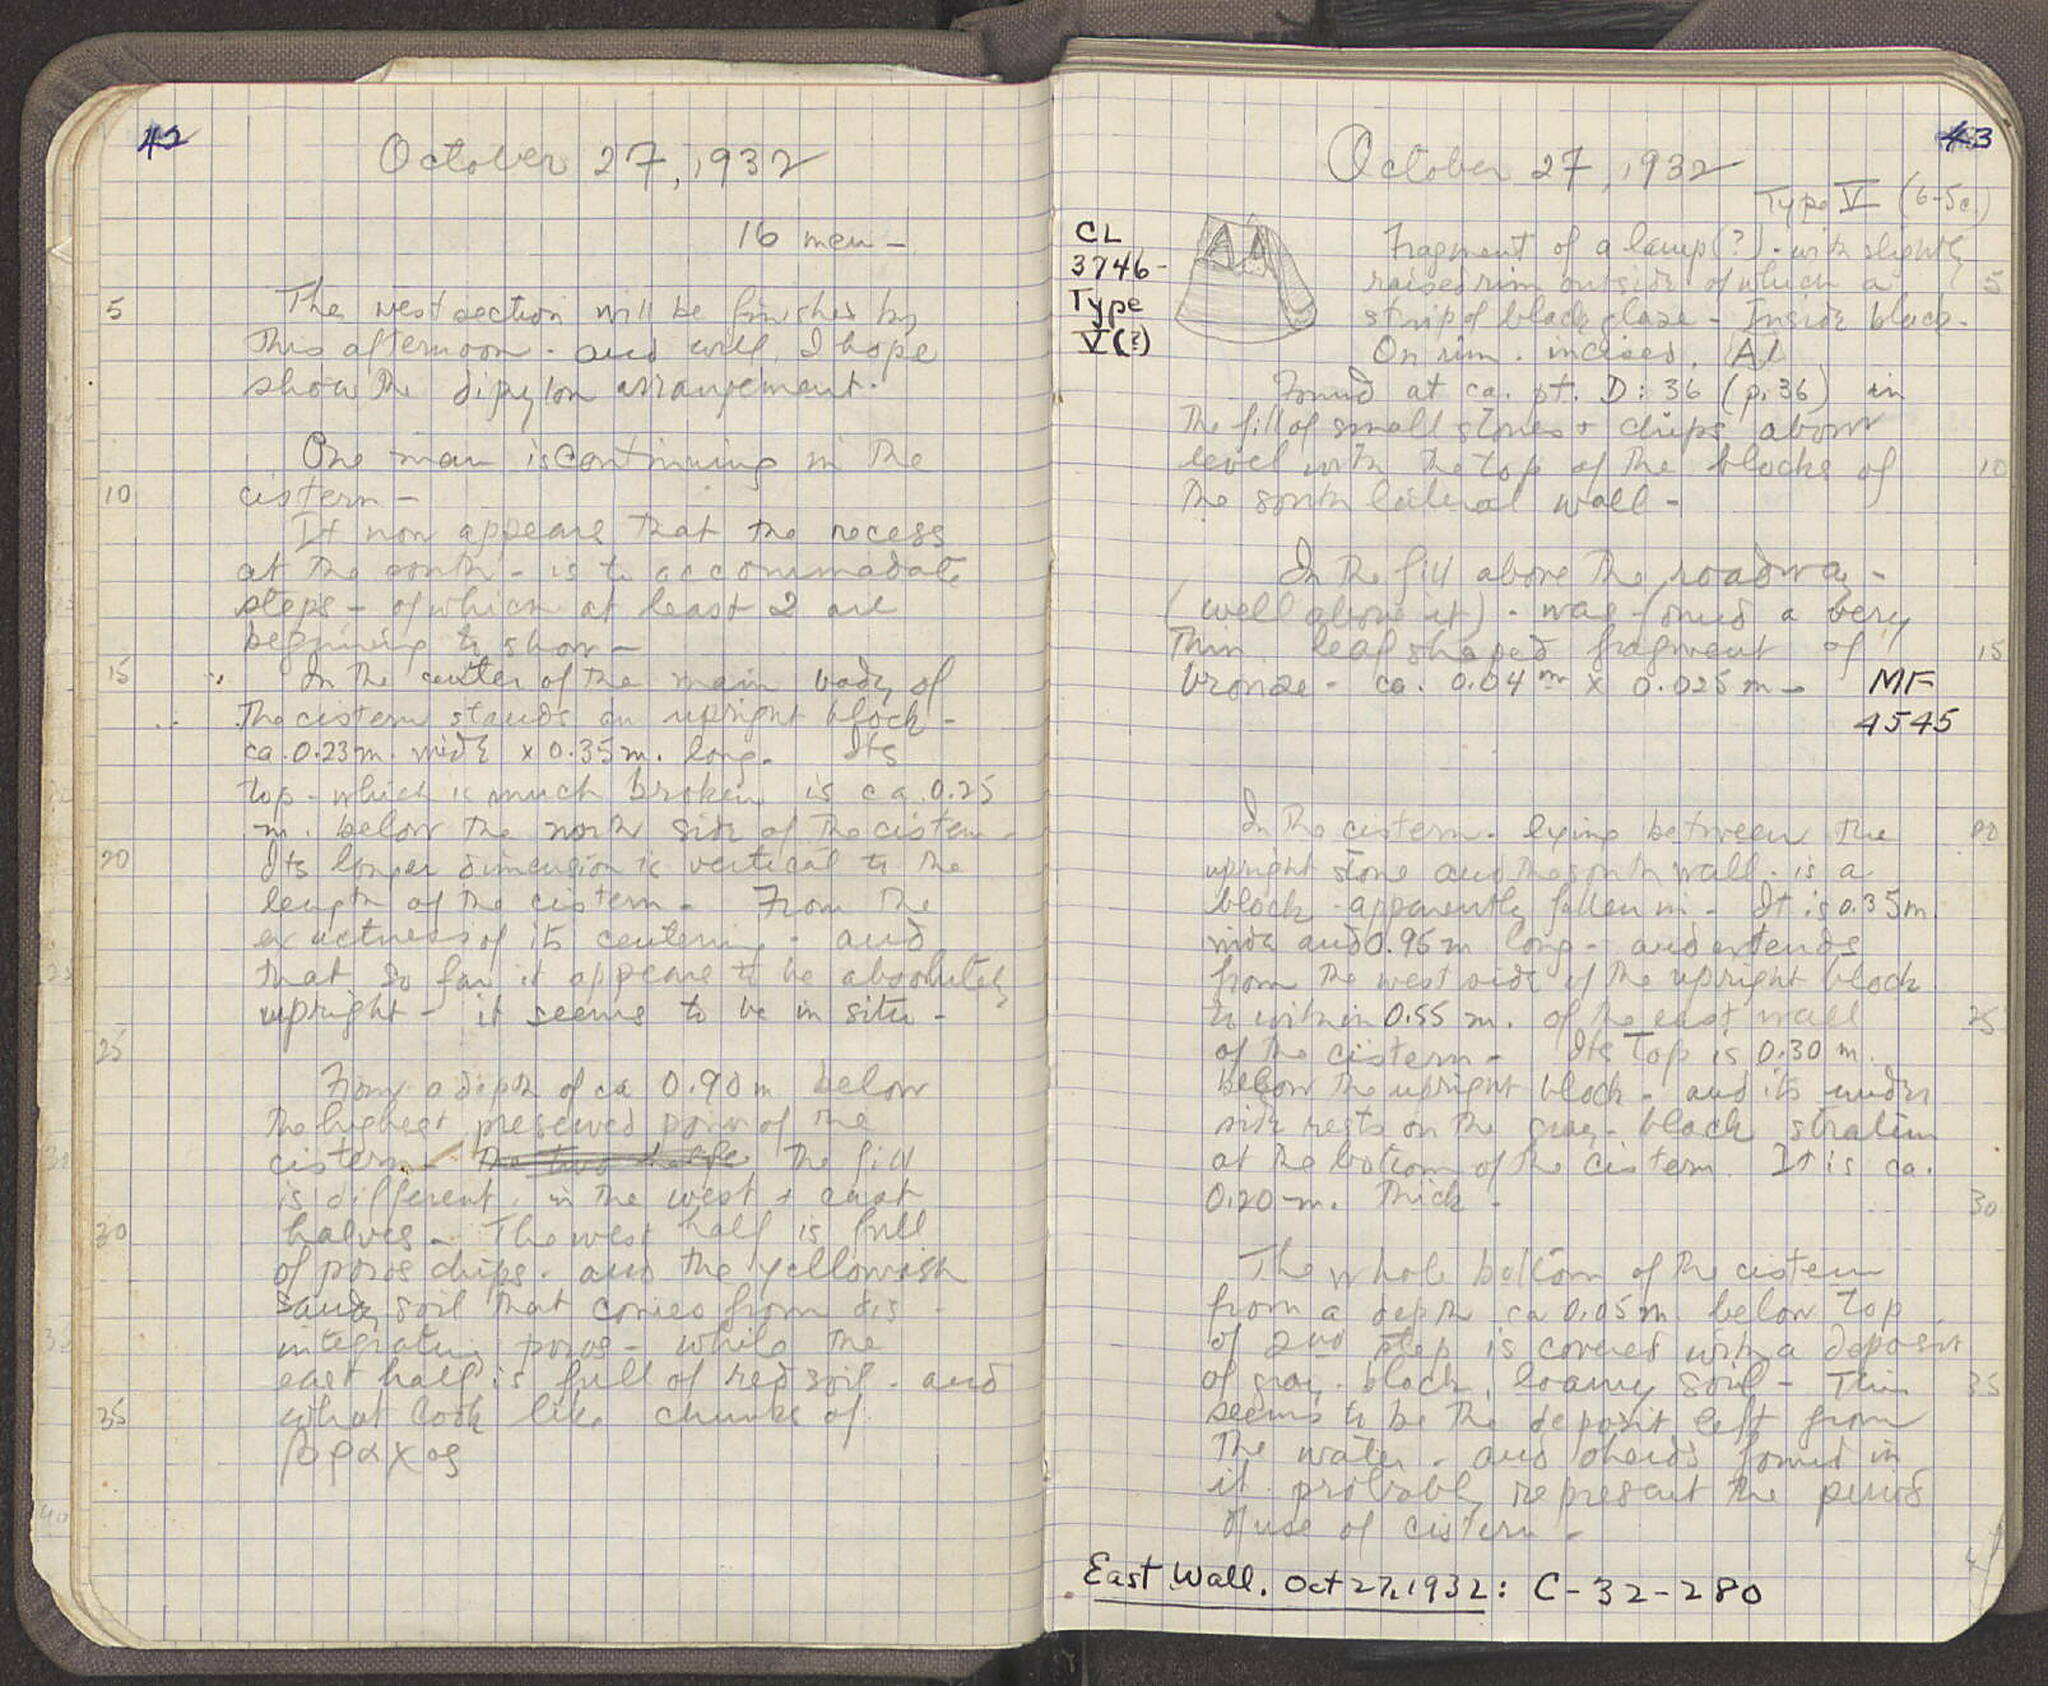 42
October 27, 1932
16 men -
5
The west section will be finished by
this afternoon - and will, I hope
show the dipylon arrangement.
One man is continuing in the
10
cistern -
It now appears that the recess
at the south - is to accommodate
steps - of which at least 2 are
beginning to show -
15
In the center of the main body of
the cistern stands an upright block -
ca. 0.23 m. wide x 0.35 m. long. Its
top - which is much broken is ca. 0.25
m. below the north side of the cistern -
20
Its longer dimension is vertical to the
length of the cistern - From the
exactness of its centering - and
that so far it appears to be absolutely
upright - it seems to be in situ -
25
From a depth of ca 0.90 m below
the highest preserved point of the
cistern - the two halfs the fill
is different, in the west & east
30
halves - The west half is full
of poros chips - and the yellowish
sandy soil that comes from dis-
integrating poros - while the
east half is full of red soil - and
35
what look like chunks of
βραχος
43
October 27, 1932
Type V (6-5c.)
CL
3746-
Type
V(?)
Fragment of a lamp(?) - with slightly
raised rim outside of which a
5
strip of black glaze - Inside black -
On rim - incised, AΛ
Found at ca. pt. D:36 (p. 36) in
the fill of small stones & chips above
level with the top of the blocks of
10
the south lateral wall -
In the fill above the roadway -
(well above it) - was found a very
thin leaf shaped fragment of
15
bronze - ca. 0.04 m x 0.025 m -
MF
4545
In the cistern - lying between the
20
upright stone and the south wall - is a
block - apparently fallen in - It is 0.35 m
wide and 0.95 m long - and extends
from the west side of the upright block
to within 0.55 m. of the east wall
25
of the cistern - Its top is 0.30 m.
below the upright block - and its under
side rests on the gray-black stratum
at the bottom of the cistern. It is ca.
0.20 m. thick -
30
The whole bottom of the cistern
from a depth ca 0.05 m. below top
of 2nd step is covered with a deposit
of gray-black, loamy soil - This
35
seems to be the deposit left from
the water - and sherds found in
it probably represent the period
of use of cistern -
East Wall. Oct 27, 1932: C-32-280